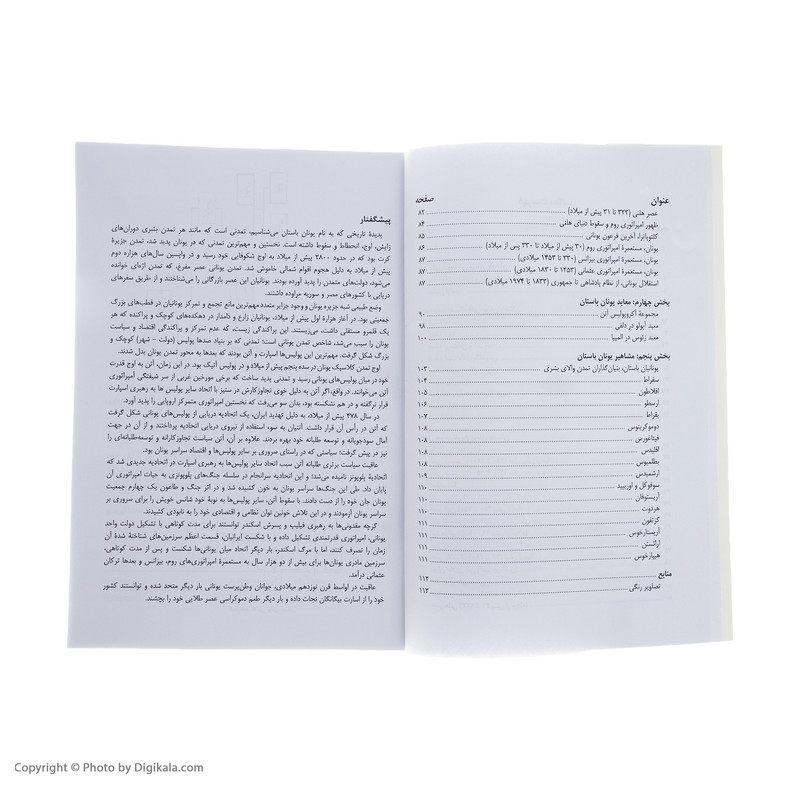 عنوان صفحه
عصر هلنی (۳۲۳ تا ۳۱ پیش از میلاد) ۸۲
ظهور امپراتوری روم و سقوط دنیای هلنی ۸۴
کلئوپاترا، آخرین فرعون یونانی ۸۵
یونان، مستعمرهٔ امپراتوری روم (۳۰ پیش از میلاد تا ۳۳۰ پس از میلاد) ۸۶
یونان، مستعمرهٔ امپراتوری بیزانس (۳۳۰ تا ۱۴۵۳ میلادی) ۸۷
یونان، مستعمرهٔ امپراتوری عثمانی (۱۴۵۳ تا ۱۸۳۰ میلادی) ۸۷
استقلال یونانی، از نظام پادشاهی تا جمهوری (۱۸۳۳ تا ۱۹۷۴ میلادی) ۸۷
بخش چهارم: معابد یونان باستان
مجموعهٔ آکروپولیس آتن ۹۰
معبد آپولو در دلفی ۹۸
معبد زئوس در المپیا ۱۰۰
بخش پنجم: مشاهیر یونان باستان
یونانیان باستان، بنیان‌گذاران تمدن والای بشری ۱۰۳
سقراط ۱۰۴
افلاطون ۱۰۵
ارسطو ۱۰۶
بقراط ۱۰۷
دموکریتوس ۱۰۸
فیثاغورس ۱۰۸
اقلیدس ۱۰۸
بطلمیوس ۱۰۸
ارشمیدس ۱۰۸
سوفوکل و اوریپید ۱۱۰
آریستوفان ۱۱۰
هردوت ۱۱۰
گزنفون ۱۱۱
آریستارخوس ۱۱۱
اراتستن ۱۱۱
هیپارخوس ۱۱۱
منابع ۱۱۲
تصاویر رنگی ۱۱۳
پیشگفتار
پدیدهٔ تاریخی که به نام یونان باستان می‌شناسیم، تمدنی است که مانند هر تمدن بشری دوران‌های
زایش، اوج، انحطاط و سقوط داشته است. نخستین و مهم‌ترین تمدنی که در یونان پدید شد، تمدن جزیرهٔ
کرت بود که در حدود ۲۸۰۰ پیش از میلاد به اوج شکوفایی خود رسید و در واپسین سال‌های هزاره دوم
پیش از میلاد به دلیل هجوم اقوام شمالی خاموش شد. تمدن یونانی عصر مفرغ، که تمدن اژه‌ای خوانده
می‌شود، دولت‌های متمدن را پدید آورده بودند. یونانیان این عصر بازرگانی را می‌شناختند و از طریق سفرهای
دریایی با کشورهای مصر و سوریه مراوده داشتند.
وضع طبیعی شبه جزیره یونان و وجود جزایر متعدد مهم‌ترین مانع تجمع و تمرکز یونانیان در قطب‌های بزرگ
جمعیتی بود. از آغاز هزارهٔ اول پیش از میلاد، یونانیان زارع و دامدار در دهکده‌های کوچک و پراکنده که هر
یک قلمرو مستقلی داشت، می‌زیستند. این پراکندگی زیست، که عدم تمرکز و پراکندگی اقتصاد و سیاست
یونان را سبب می‌شد، شاخص تمدن یونانی است؛ تمدنی که بر بنیاد صدها پولیس (دولت - شهر) کوچک و
بزرگ شکل گرفت. مهم‌ترین این پولیس‌ها اسپارت و آتن بودند که بعدها به محور تمدن یونان بدل شدند.
اوج تمدن کلاسیک یونان در سده پنجم پیش از میلاد و در پولیس آتیک بود. در این زمان، آتن به اوج قدرت
خود در میان پولیس‌های یونانی رسید و تمدنی پدید ساخت که برخی مورخین غربی از سر شیفتگی امپراتوری
آتن می‌خوانند. در واقع، اگر آتن به دلیل خوی تجاوزکارش در ستیز با اتحاد سایر پولیس ها به رهبری اسپارت
قرار نگرفته و در هم نشکسته بود، بدان سو می‌رفت که نخستین امپراتوری متمرکز اروپایی را پدید آورد.
در سال ۴۷۸ پیش از میلاد، به دلیل تهدید ایران، یک اتحادیه دریایی از پولیس‌های یونانی شکل گرفت
که آتن در رأس آن قرار داشت. آتنیان به سوء استفاده از نیروی دریایی اتحادیه پرداختند و از آن در جهت
آمال سودجویانه و توسعه طلبانه خود بهره بردند. علاوه بر آن، آتن سیاست تجاوزکارانه و توسعه‌طلبانه‌ای را
نیز در پیش گرفت؛ سیاستی که در راستای سروری بر سایر پولیس‌ها و اقتصاد سراسر یونان بود.
عاقبت سیاست برتری طلبانه آتن سبب اتحاد سایر پولیس‌ها به رهبری اسپارت در اتحادیه جدیدی شد که
اتحادیهٔ پلوپونز نامیده می‌شد؛ و این اتحادیه سرانجام در سلسله جنگ‌های پلوپونزی به حیات امپراتوری آتن
پایان داد. طی این جنگ‌ها سراسر یونان به خون کشیده شد و در اثر جنگ و طاعون یک چهارم جمعیت
یونان جان خود را از دست دادند. با سقوط آتن، سایر پولیس‌ها به نوبهٔ خود شانس خویش را برای سروری بر
سراسر یونان آزمودند و در این تلاش خونین توان نظامی و اقتصادی خود را به نابودی کشیدند.
گرچه مقدونی‌ها به رهبری فیلیپ و پسرش اسکندر توانستند برای مدت کوتاهی با تشکیل دولت واحد
یونانی، امپراتوری قدرتمندی تشکیل داده و با شکست ایرانیان، قسمت اعظم سرزمین‌های شناختهٔ شدهٔ آن
زمان را تصرف کنند، اما با مرگ اسکندر، بار دیگر اتحاد میان یونانی‌ها شکست و پس از مدت کوتاهی،
سرزمین مادری یونان‌ها برای بیش از دو هزار سال به مستعمرهٔ امپراتوری‌های روم، بیزانس و بعدها ترکان
عثمانی درآمد.
عاقبت در اواسط قرن نوزدهم میلادی، جوانان وطن‌پرست یونانی بار دیگر متحد شده و توانستند کشور
خود را از اسارت بیگانگان نجات داده و بار دیگر طعم دموکراسی عصر طلایی خود را بچشند.
Copyright © Photo by Digikala.com